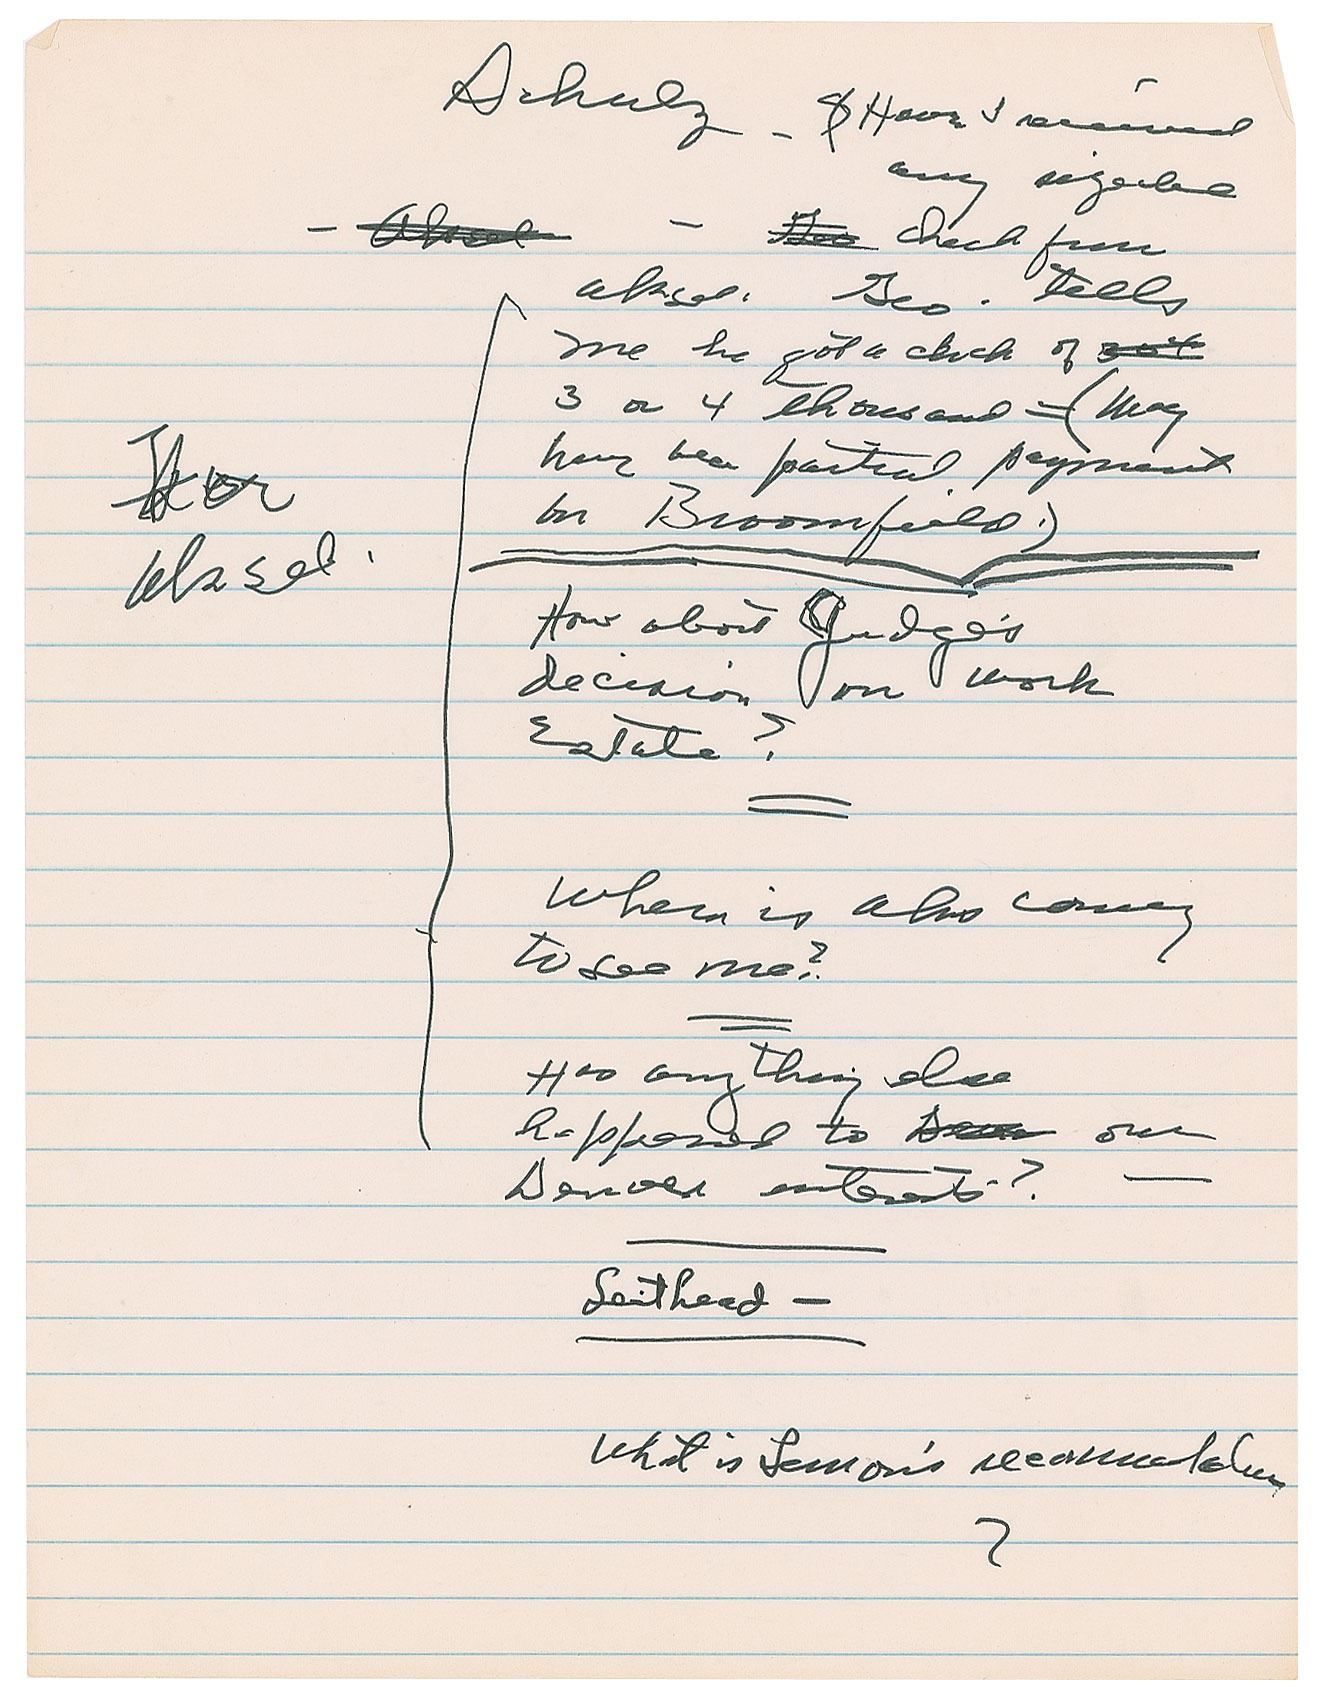 Schulz - Have I received
any sizeable
- Aksel - Geo check from
Aksel. Geo. tells
me he got a check of
3 or 4 thousand - (May
have been partial payment
on Broomfield.)
For
Aksel.
How about Judge's
decision on work
Estate?
When is Aks coming
to see me?
Has anything else
happened to our
Denver interests?
Leithead -
What is Lemon's recommendation
?